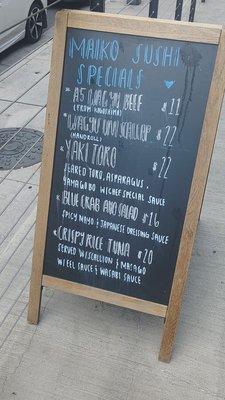 MAIKO SUSHI
SPECIALS
* A5 WAGYU BEEF $21
(FROM KAGOSHIMA)
* WAGYU UNI SCALLOP $22
(HANDROLL)
* YAKI TORO $22
SEARED TORO, ASPARAGUS,
YAMAGOBO W/CHEF SPECIAL SAUCE
* BLUE CRAB AVO SALAD $16
SPICY MAYO & JAPANESE DRESSING SAUCE
* CRISPY RICE TUNA $20
SERVED W/SCALLION & MASAGO
W/EEL SAUCE & WASABI SAUCE